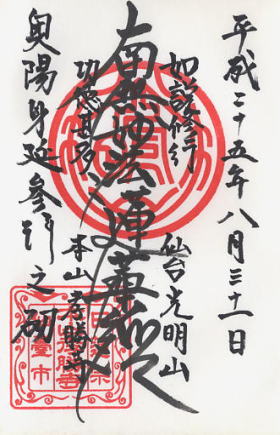 平成二十五年八月三十一日
如説修行
仙台光明山
南無妙法蓮華経
功徳甚多
本山孝勝寺
奥陽身延参詣之砌